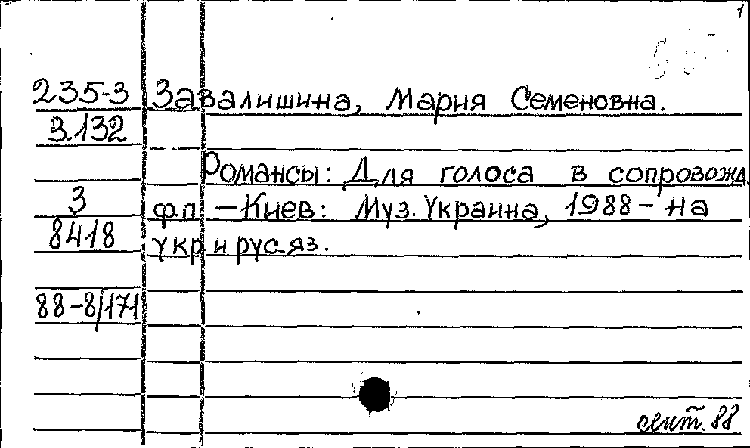 1
235-3 Завалишина, Мария Семеновна.
3.132
Романсы: Для голоса в сопровожд.
3 фп. — Киев: Муз. Украина, 1988 - на
8418 укр и рус. яз.
88-8/171
сент. 88